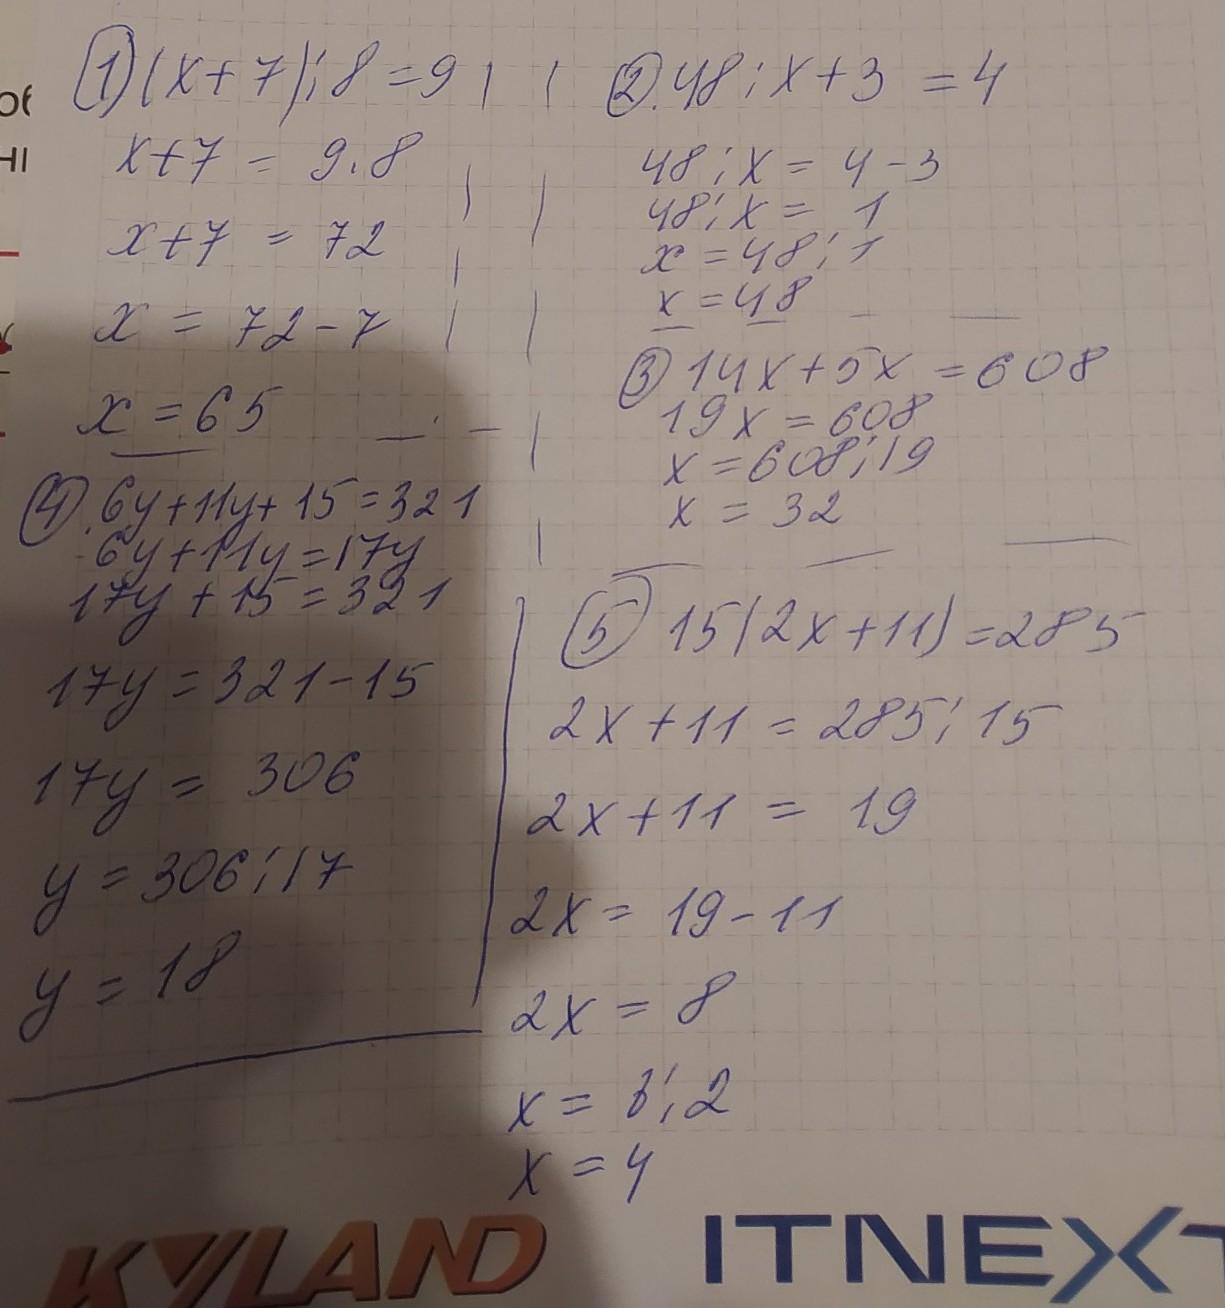 об
НІ
1) (x+7):8=9
x+7 = 9.8
x+7 = 72
x = 72-7
x = 65
2. 48:x+3 = 4
48:x = 4-3
48:x = 1
x = 48:1
x = 48
3) 14x+5x = 608
19x = 608
x = 608:19
x = 32
4. 6y+11y+15=321
6y+11y=17y
17y+15=321
17y=321-15
17y= 306
y=306:17
y=18
5) 15(2x+11)=285
2x+11 = 285:15
2x+11 = 19
2x= 19-11
2x = 8
x = 8:2
x = 4
KYLAND
ITNEXT